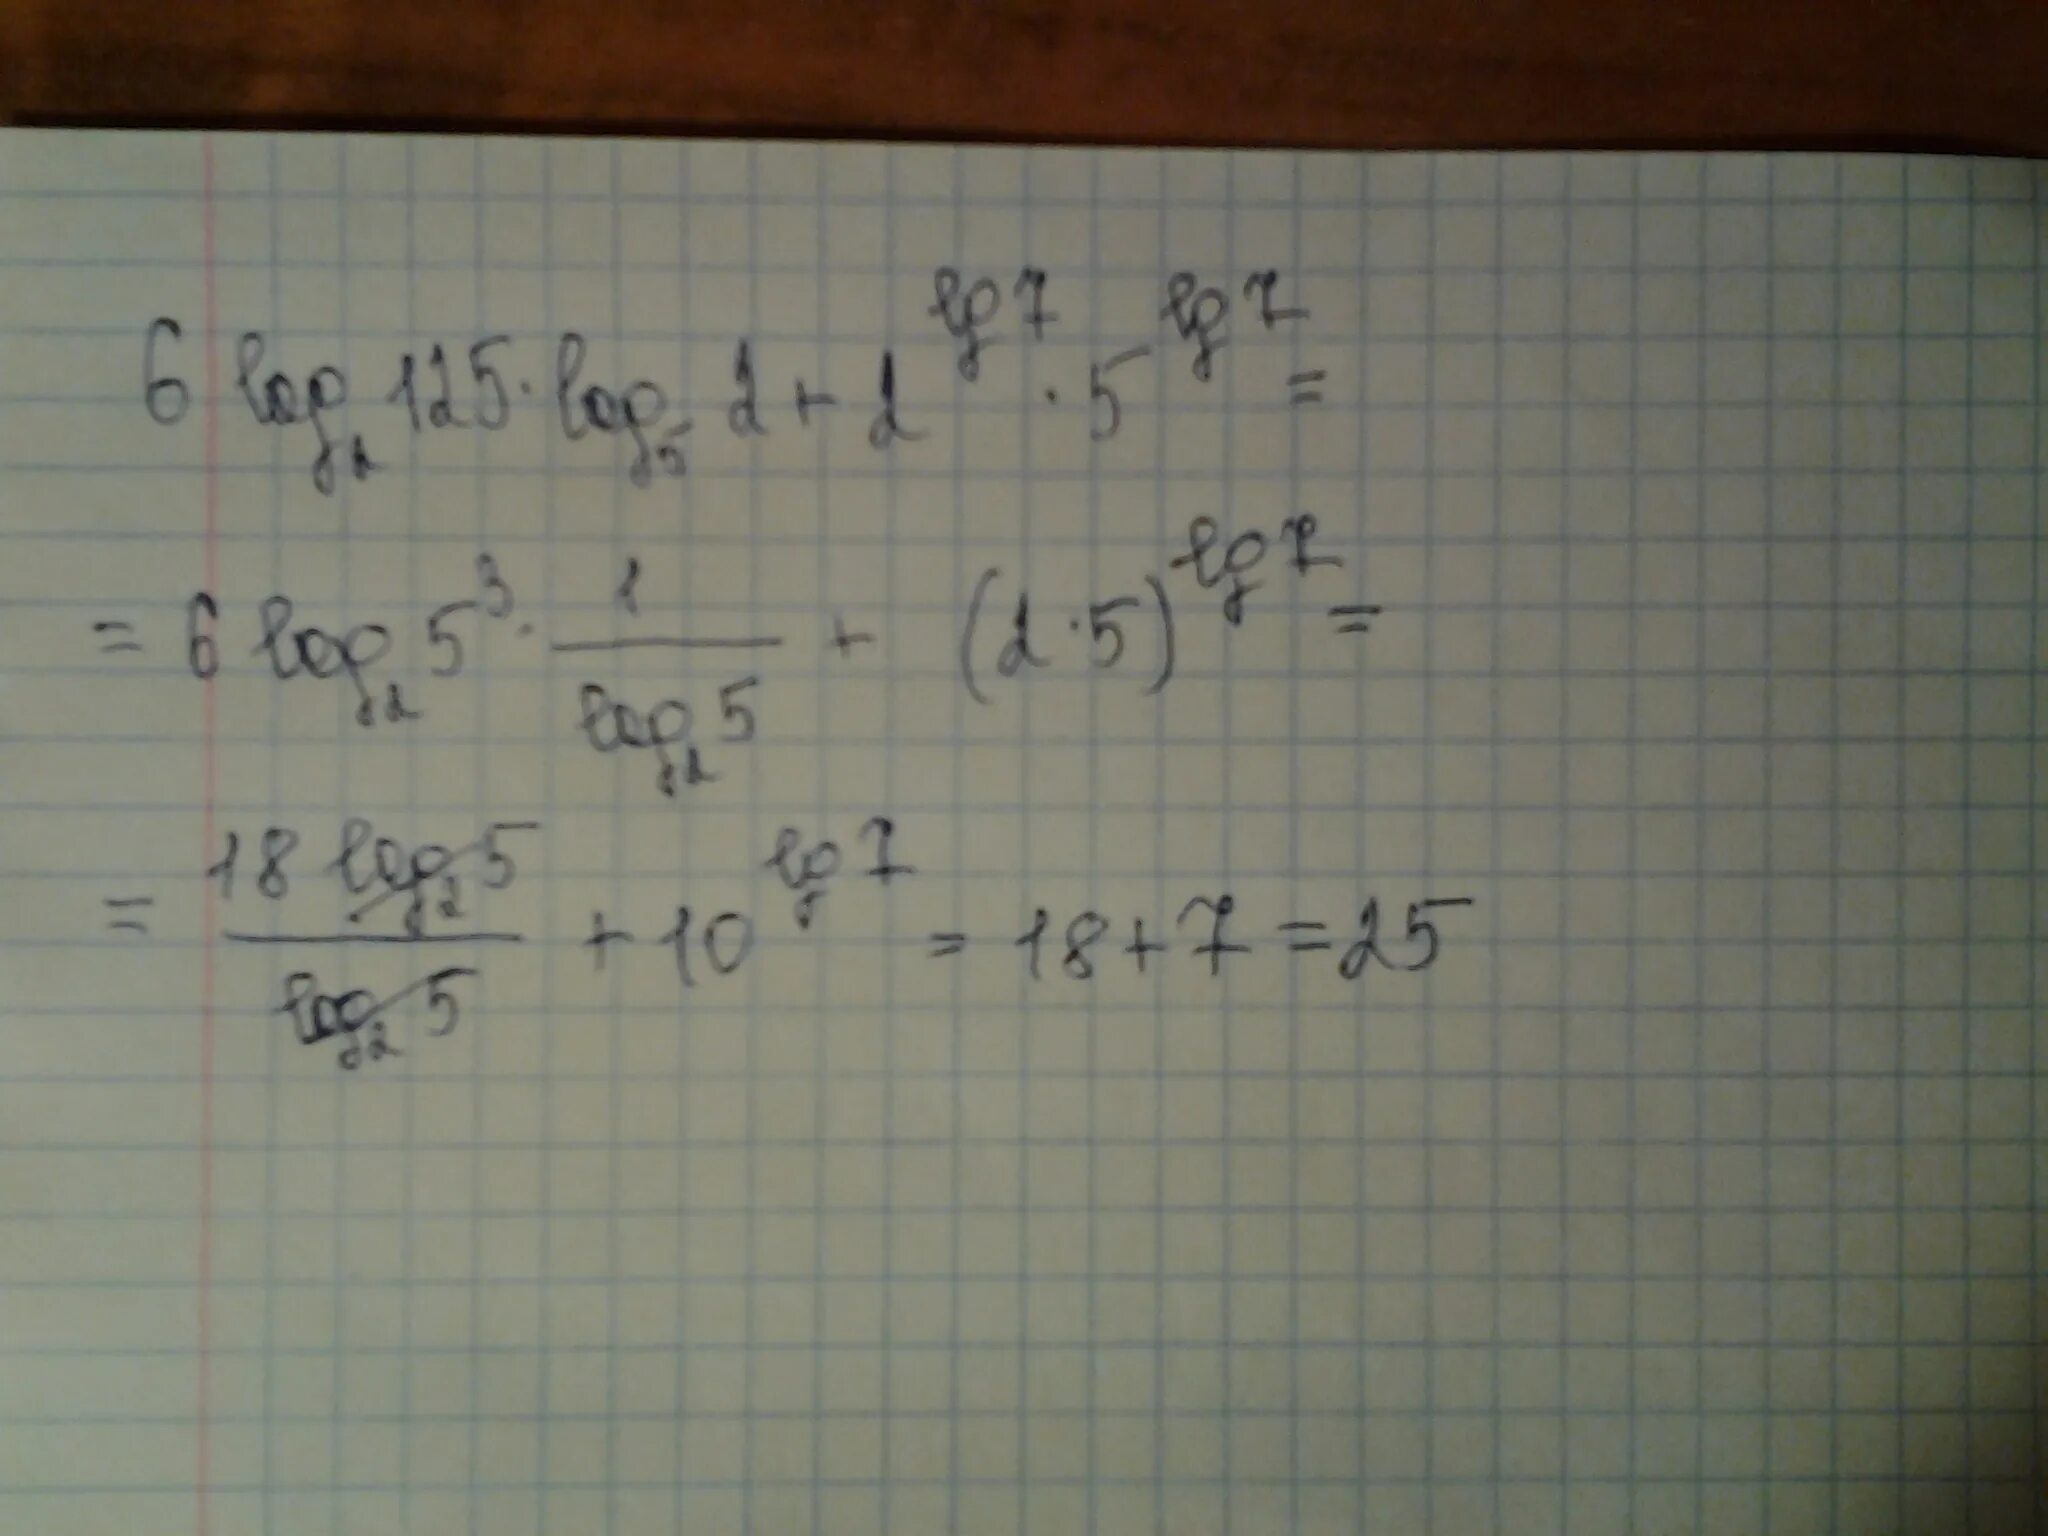 6 log₂ 125 · log₅ 2 + 2^(lg 7) · 5^(lg 7) =
= 6 log₂ 5³ · 1/(log₂ 5) + (2 · 5)^(lg 7) =
= (18 log₂ 5)/(log₂ 5) + 10^(lg 7) = 18 + 7 = 25